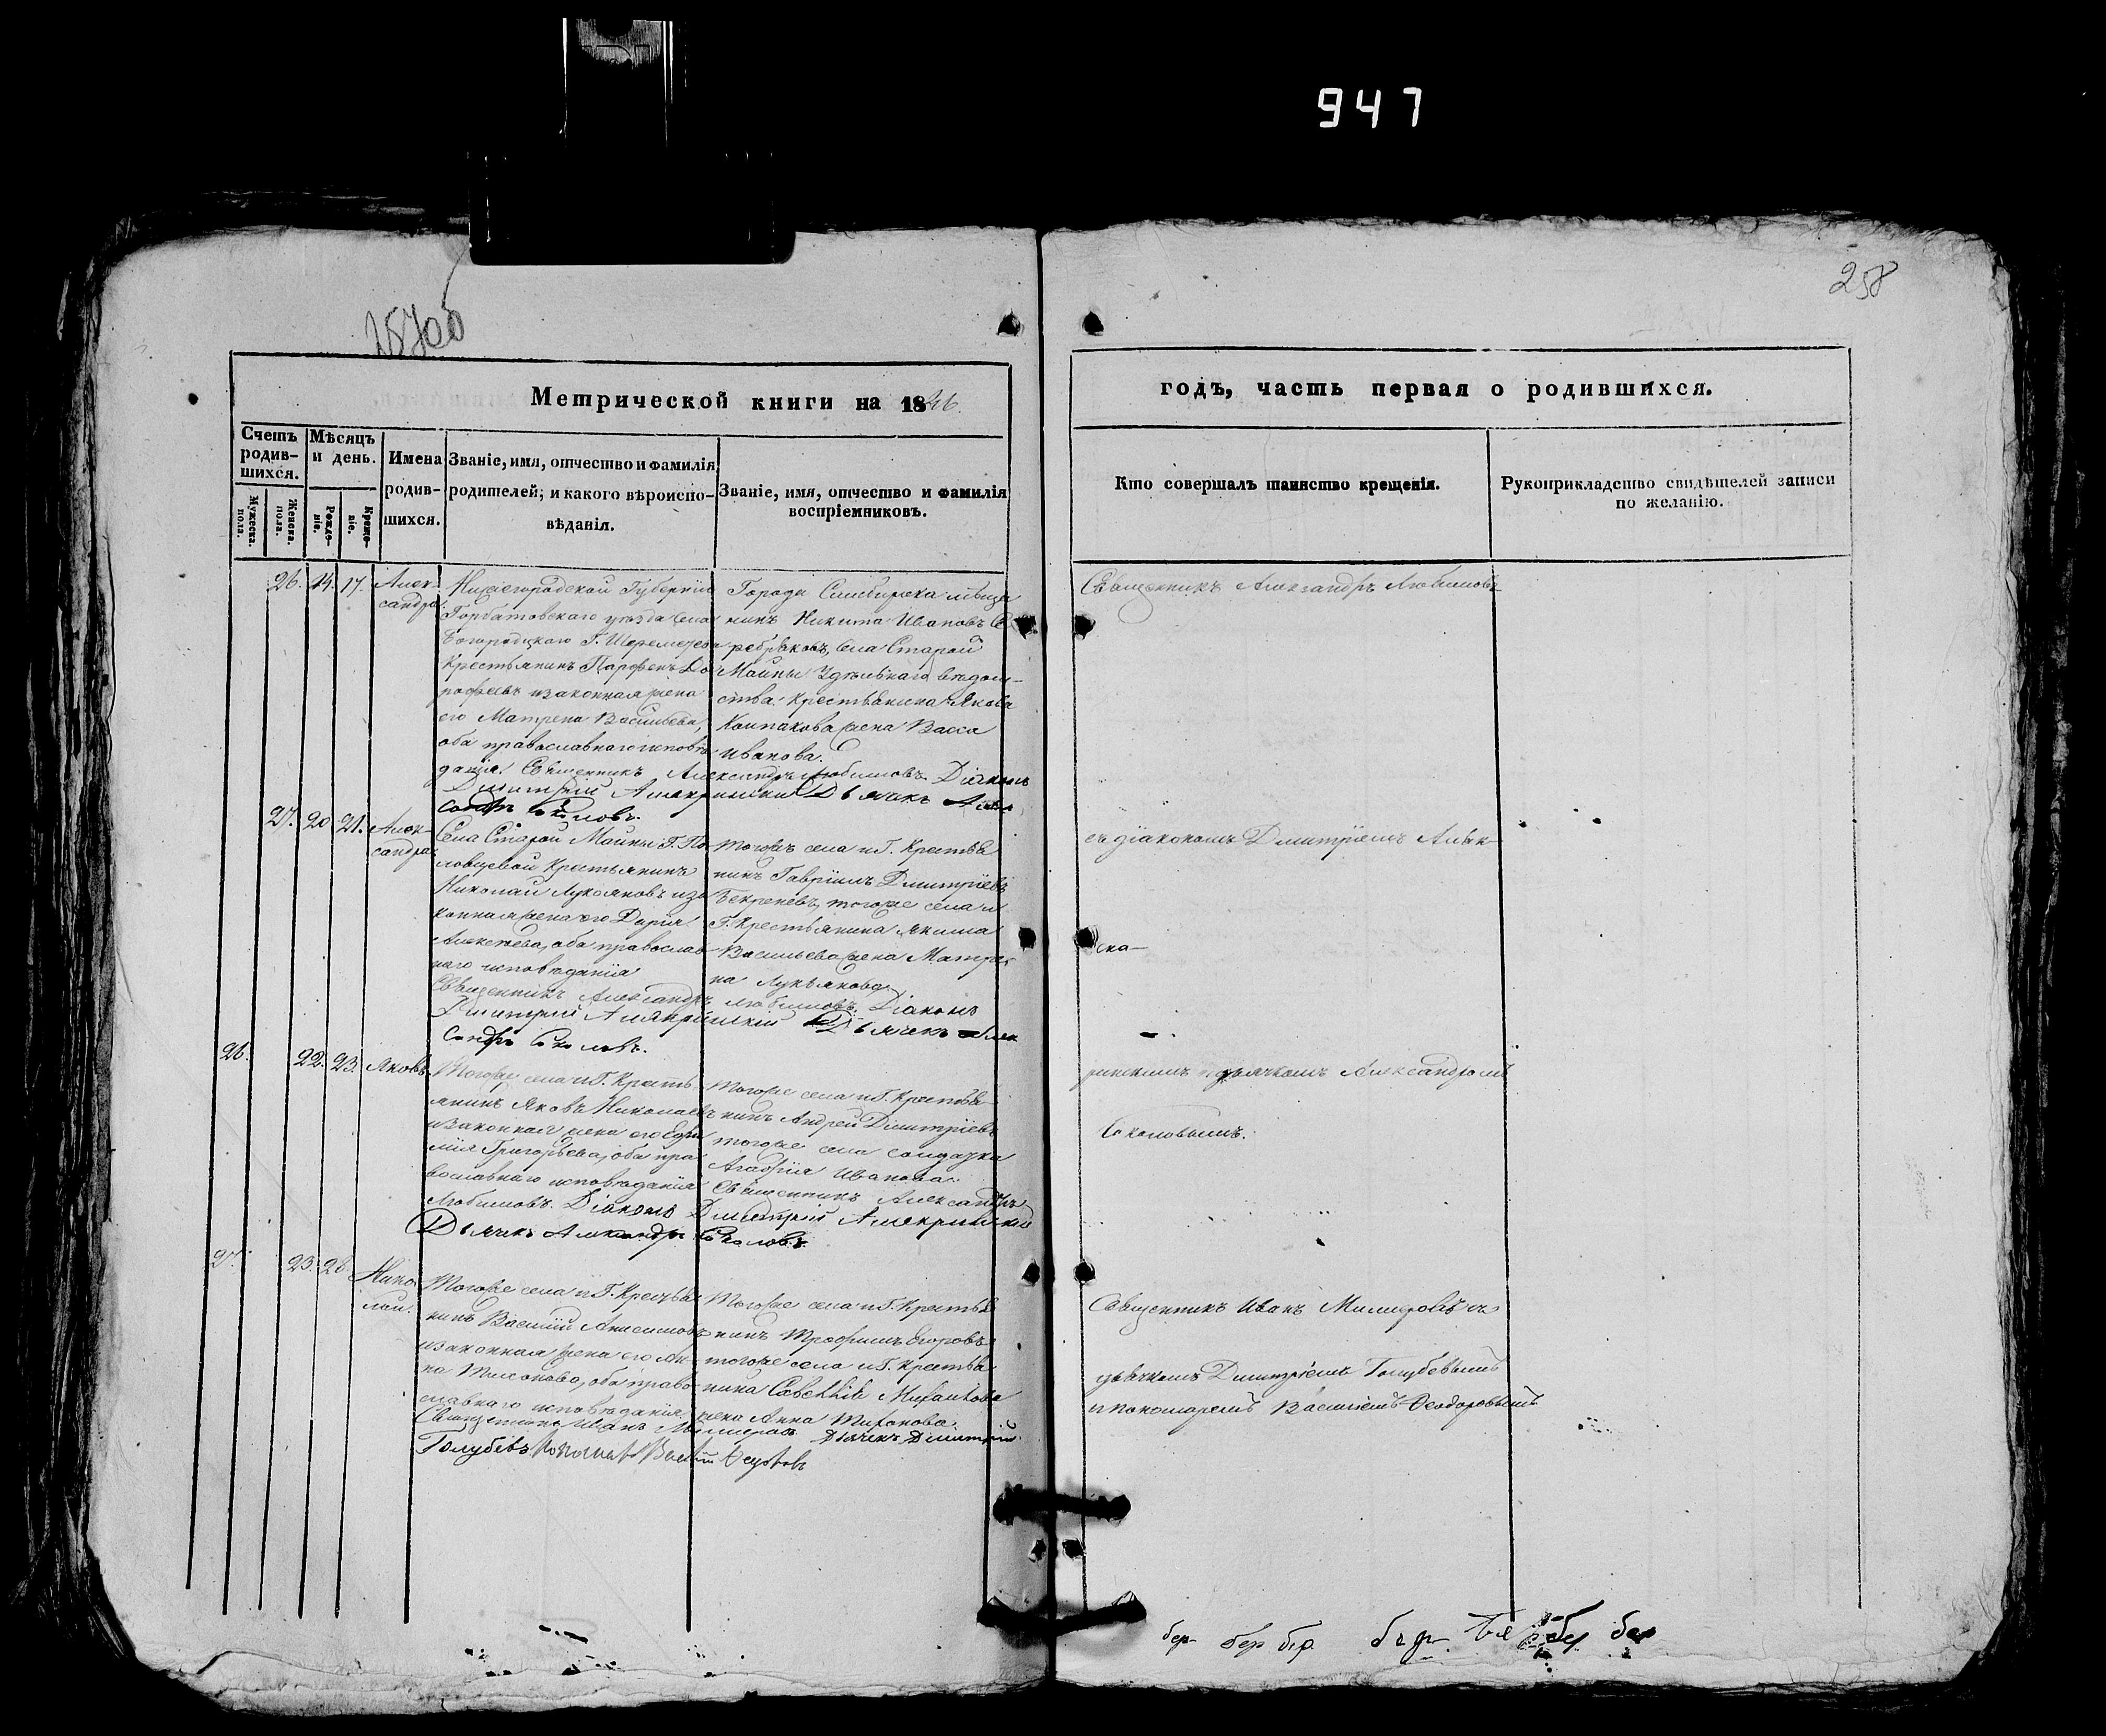 947
258
15700
Метрической книги на 1846.
годъ, часть первая о родившихся.
Счетъ родившихся.
Мужеска. пола.
Женска. пола.
Мѣсяцъ и день.
Рожденіе.
Крещеніе.
Имена родившихся.
Званіе, имя, отчество и фамилія
родителей; и какого вѣроиспо-
вѣданія.
Званіе, имя, отчество и фамилія
воспріемниковъ.
Кто совершалъ таинство крещенія.
Рукоприкладство свидѣтелей записи
по желанію.
26. 14. 17. Алек-
сандра.
Нижегородской Губерніи
Горбатовскаго уѣзда села
Богородскаго Г. Шереметева
Крестьянинъ Парфенъ До-
рофеевъ изаконная жена
его Матрена Васильева,
оба православнаго исповѣ-
данія. Священникъ Александръ Любимовъ. Діаконъ
Дмитрій Алякринскій Дьячекъ Алек-
сандръ Соколовъ.
Города Симбирска мѣща-
нинъ Никита Ивановъ Се-
ребряковъ, села Старой
Майны Удѣльнаго вѣдом-
ства крестьянина Якова
Колпакова жена Васса
Иванова.
Священникъ Александръ Любимовъ
27. 20. 21. Алек-
сандра.
Села Старой Майны Г. По-
ловцевой Крестьянинъ
Николай Лукояновъ иза-
конная жена его Дарья
Алексеева, оба православ-
наго исповѣданія
Священникъ Александръ Любимовъ. Діаконъ
Дмитрій Алякринскій Дьячекъ Алек
сандръ Соколовъ.
Тогожъ села иГ. Крестья
нинъ Гавріилъ Дмитріевъ
Бекреневъ, тогоже села и
Г. Крестьянина Якима
Васильева жена Матре-
на Лукьянова.
съ діакономъ Дмитріемъ Аляк-
26. 22. 23. Яковъ.
Тогоже села иГ. Кресть
янинъ Яковъ Николаевъ
изаконная жена его Ефи
мія Григорьева, оба пра
вославнаго исповѣданія
Любимовъ. Діаконъ Дмитрій Алякринскій
Дьячекъ Александръ Соколовъ.
Тогоже села иГ. Крестья-
нинъ Андрей Дмитріевъ
тогоже села солдатка
Агафія Иванова.
Священникъ Александръ
ринскимъ идьячкомъ Александромъ
Соколовымъ.
27. 23. 26. Нико-
лай.
Тогоже села иГ. Крестья
нинъ Василій Анисимовъ
изаконная жена его Ан-
на Тихонова, оба право-
славнаго исповѣданія.
Священникъ Иванъ Милмеровъ Дьячекъ Дмитрій
Голубевъ Пономарь Василій Феодоровъ
Тогоже села иГ. Крестья
нинъ Трофимъ Егоровъ
тогоже села иГ. Крестья
нина Савелія Михайлова
жена Анна Тихонова.
Священникъ Иванъ Милмеровъ съ
дьячкомъ Дмитріемъ Голубевымъ
и пономаремъ Василіемъ Феодоровымъ
бер бер бер